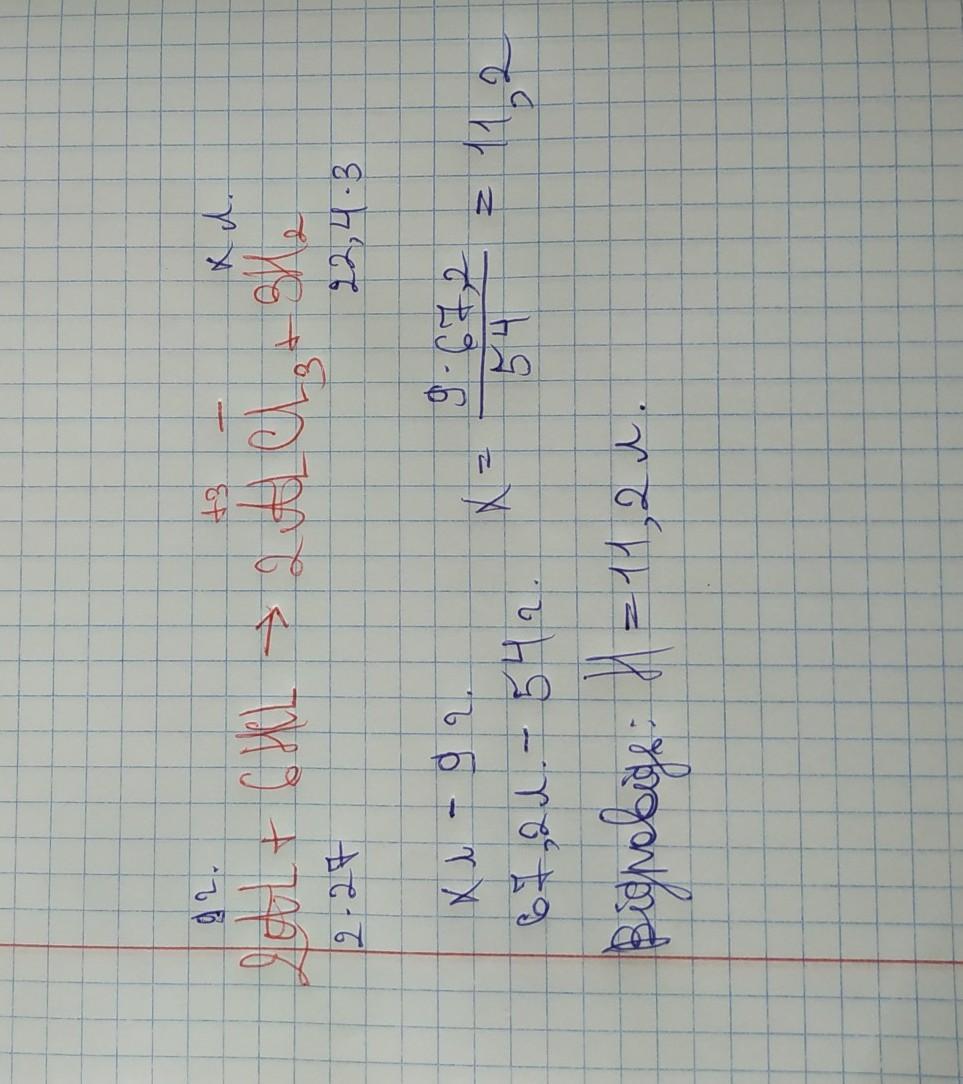 9 г. х л.
+3 −
2Al + 6HCl → 2AlCl₃ + 3H₂
2·27 22,4·3
х л – 9 г.
67,2 л. – 54 г. х = 9·67,2 / 54 = 11,2
Відповідь: V = 11,2 л.